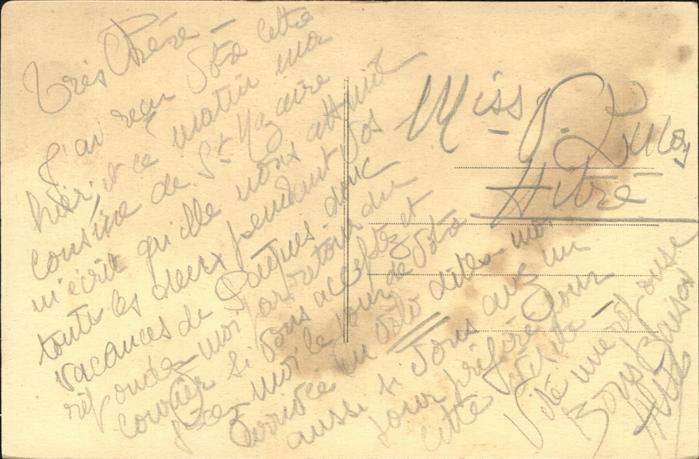 Très Chère
J'ai reçu Vtre lettre
hier, et ce matin ma
cousine de St Nazaire
m'écrit qu'elle nous attend
toutes les deux pendant vos
vacances de Pâques. donc
répondez-moi par retour du
courrier si vous acceptez et
moi le jour de Vtre
arrivée dites-moi
aussi si vous avez un
jour préféré pour
cette
Vite une réponse
Bons Baisers
Miss P.